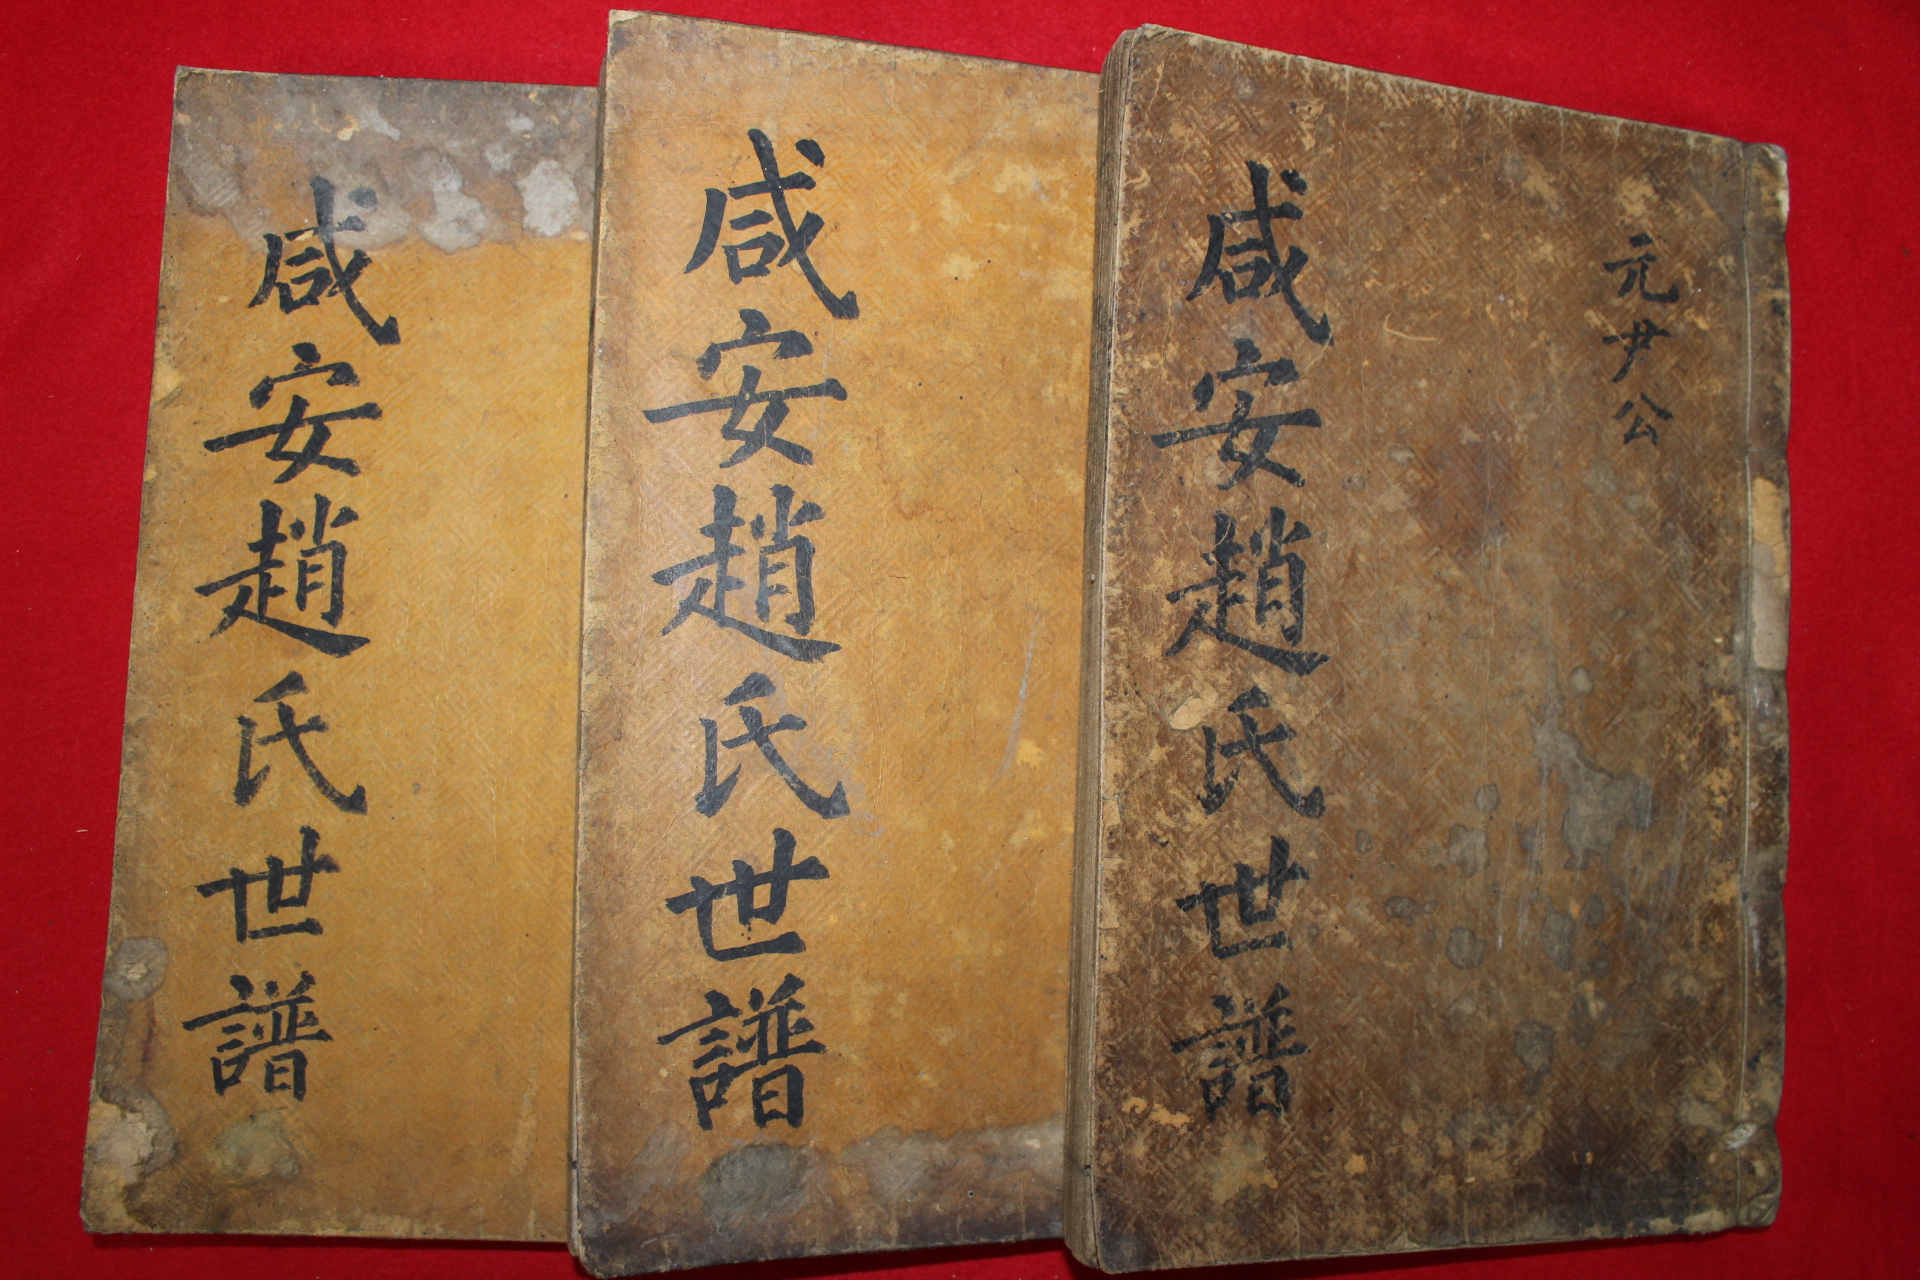 元尹公
咸安趙氏世譜
咸安趙氏世譜
咸安趙氏世譜